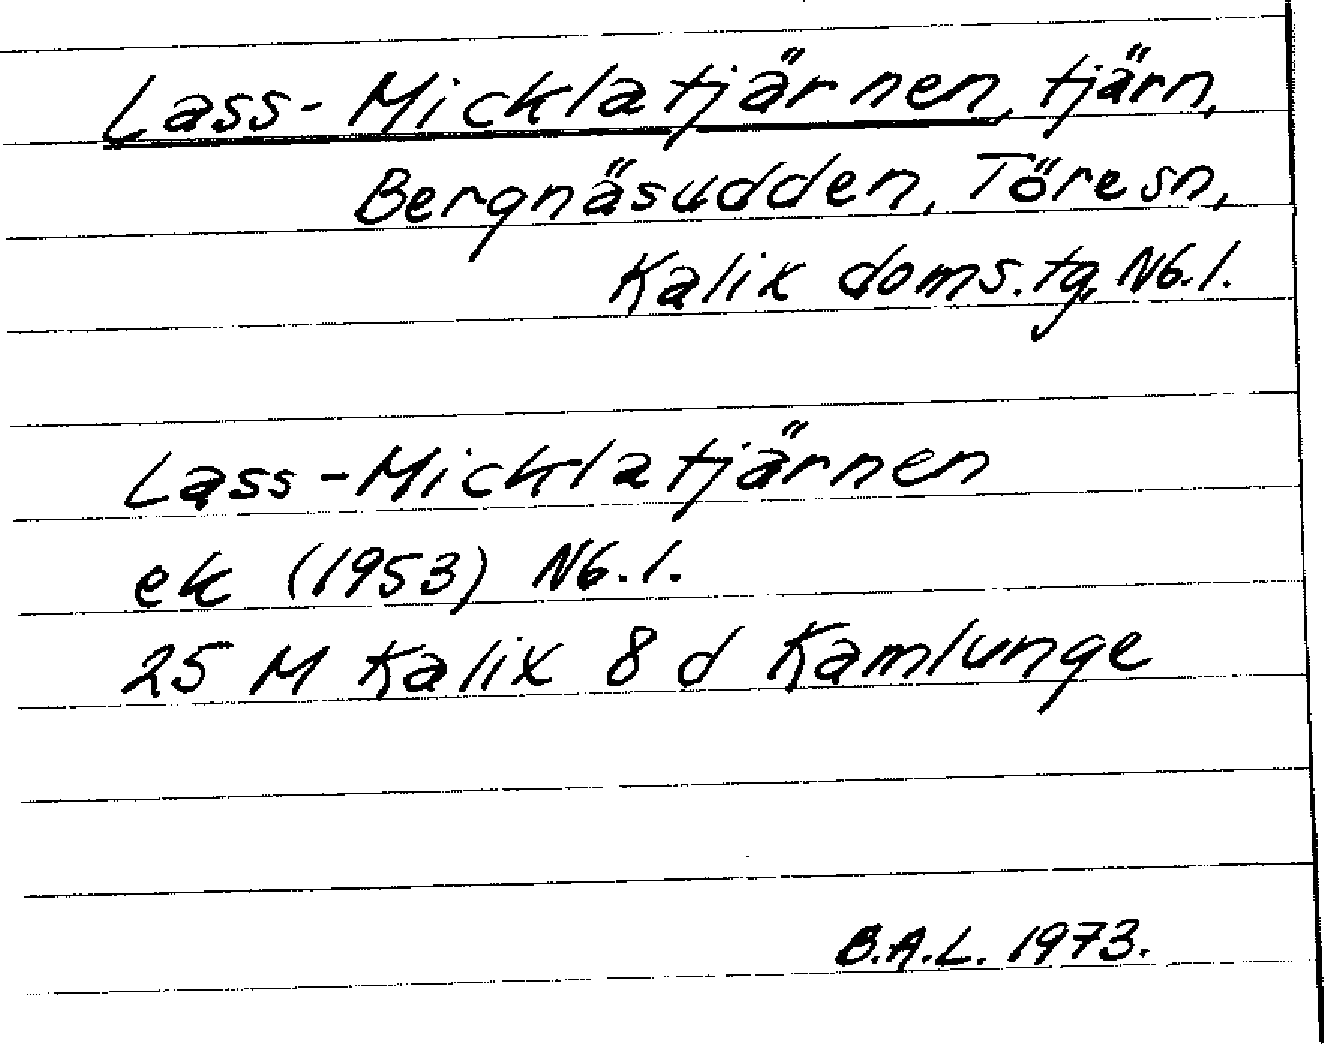 Lass-Micklatjärnen, tjärn,
Bergnäsudden, Töresn,
Kalix doms.tg, Nb.l.
Lass-Micklatjärnen
ek (1953) Nb.l.
25 M Kalix 8 d Kamlunge
B.A.L. 1973.